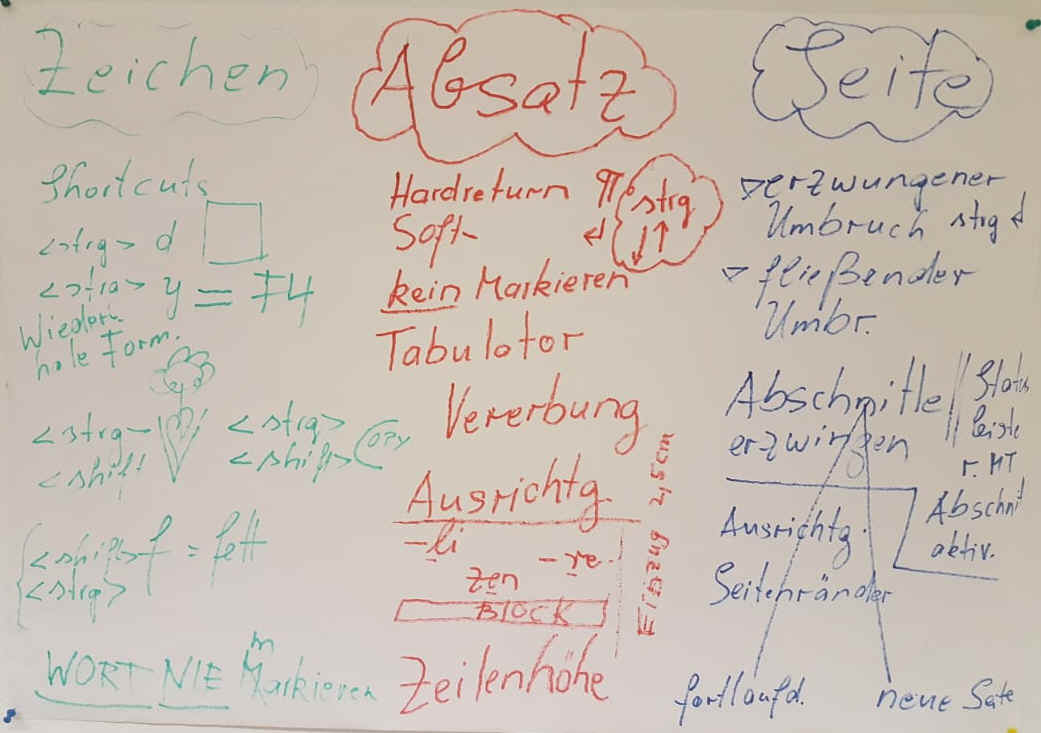 Zeichen
Shortcuts
<strg> d
<strg> y = F4
Wieder-
hole Form.
<strg>
<shift
<strg>
<shift> Copy
<shift> f = fett
<strg>
WORT NIE markieren
Absatz
Hardreturn ¶
Soft- ↵
strg
↓↑
kein Markieren
Tabulator
Vererbung
Ausrichtg.
- li
- re.
zen
BLOCK
Einzug 2,5cm
Zeilenhöhe
Seite
▷ erzwungener
Umbruch strg ↵
▷ fließender
Umbr.
Abschnitte
erzwingen
Status
leiste
r. MT
Abschnit
aktiv.
Ausrichtg.
Seitenränder
fortlaufd.
neue Seite